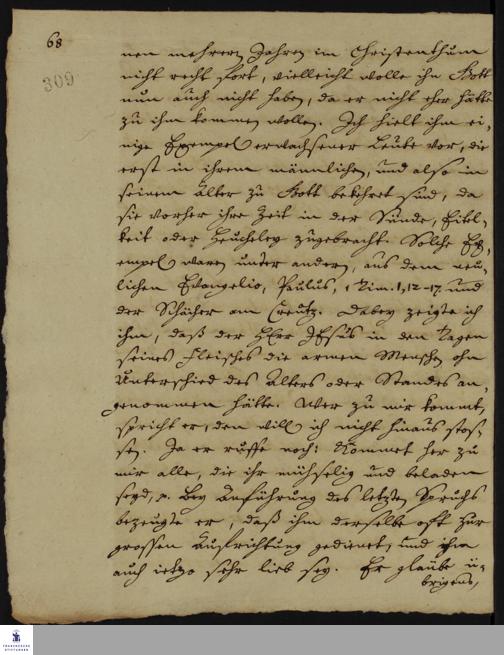 68
309
nen mehrern Jahren im Christenthum
nicht recht fort, vielleicht wolle ihn Gott
nun auch nicht haben, da er nicht eher hätte
zu ihm kommen wollen. Ich hielt ihm ei-
nige Exempel erwachsener Leute vor, die
erst in ihrem männlichen, und also in
seinem Alter zu Gott bekehret sind, da
sie vorher ihre Zeit in der Sünde, Eitel-
keit oder Heucheley zugebracht. Solche Ex-
empel waren unter andern, aus dem neu-
lichen Evangelio, Paulus, 1 Tim. 1, 12-17. und
der Schächer am Creutz. Dabey zeigte ich
ihm, daß der HErr JEsus in den Tagen
seines Fleisches die armen Menschen ohn
Unterschied des Alters oder Standes an-
genommen hätte. Wer zu mir kommt,
spricht er, den will ich nicht hinaus stos-
sen. Ja er ruffe noch: Kommet her zu
mir alle, die ihr mühselig und beladen
seyd, p. Bey Anführung des letzten Spruchs
bezeugte er, daß ihm derselbe oft zur
grossen Aufrichtung gedienet, und ihm
auch ietzo sehr lieb sey. Er glaube ü-
brigens,
FRANCKESCHE
STIFTUNGEN